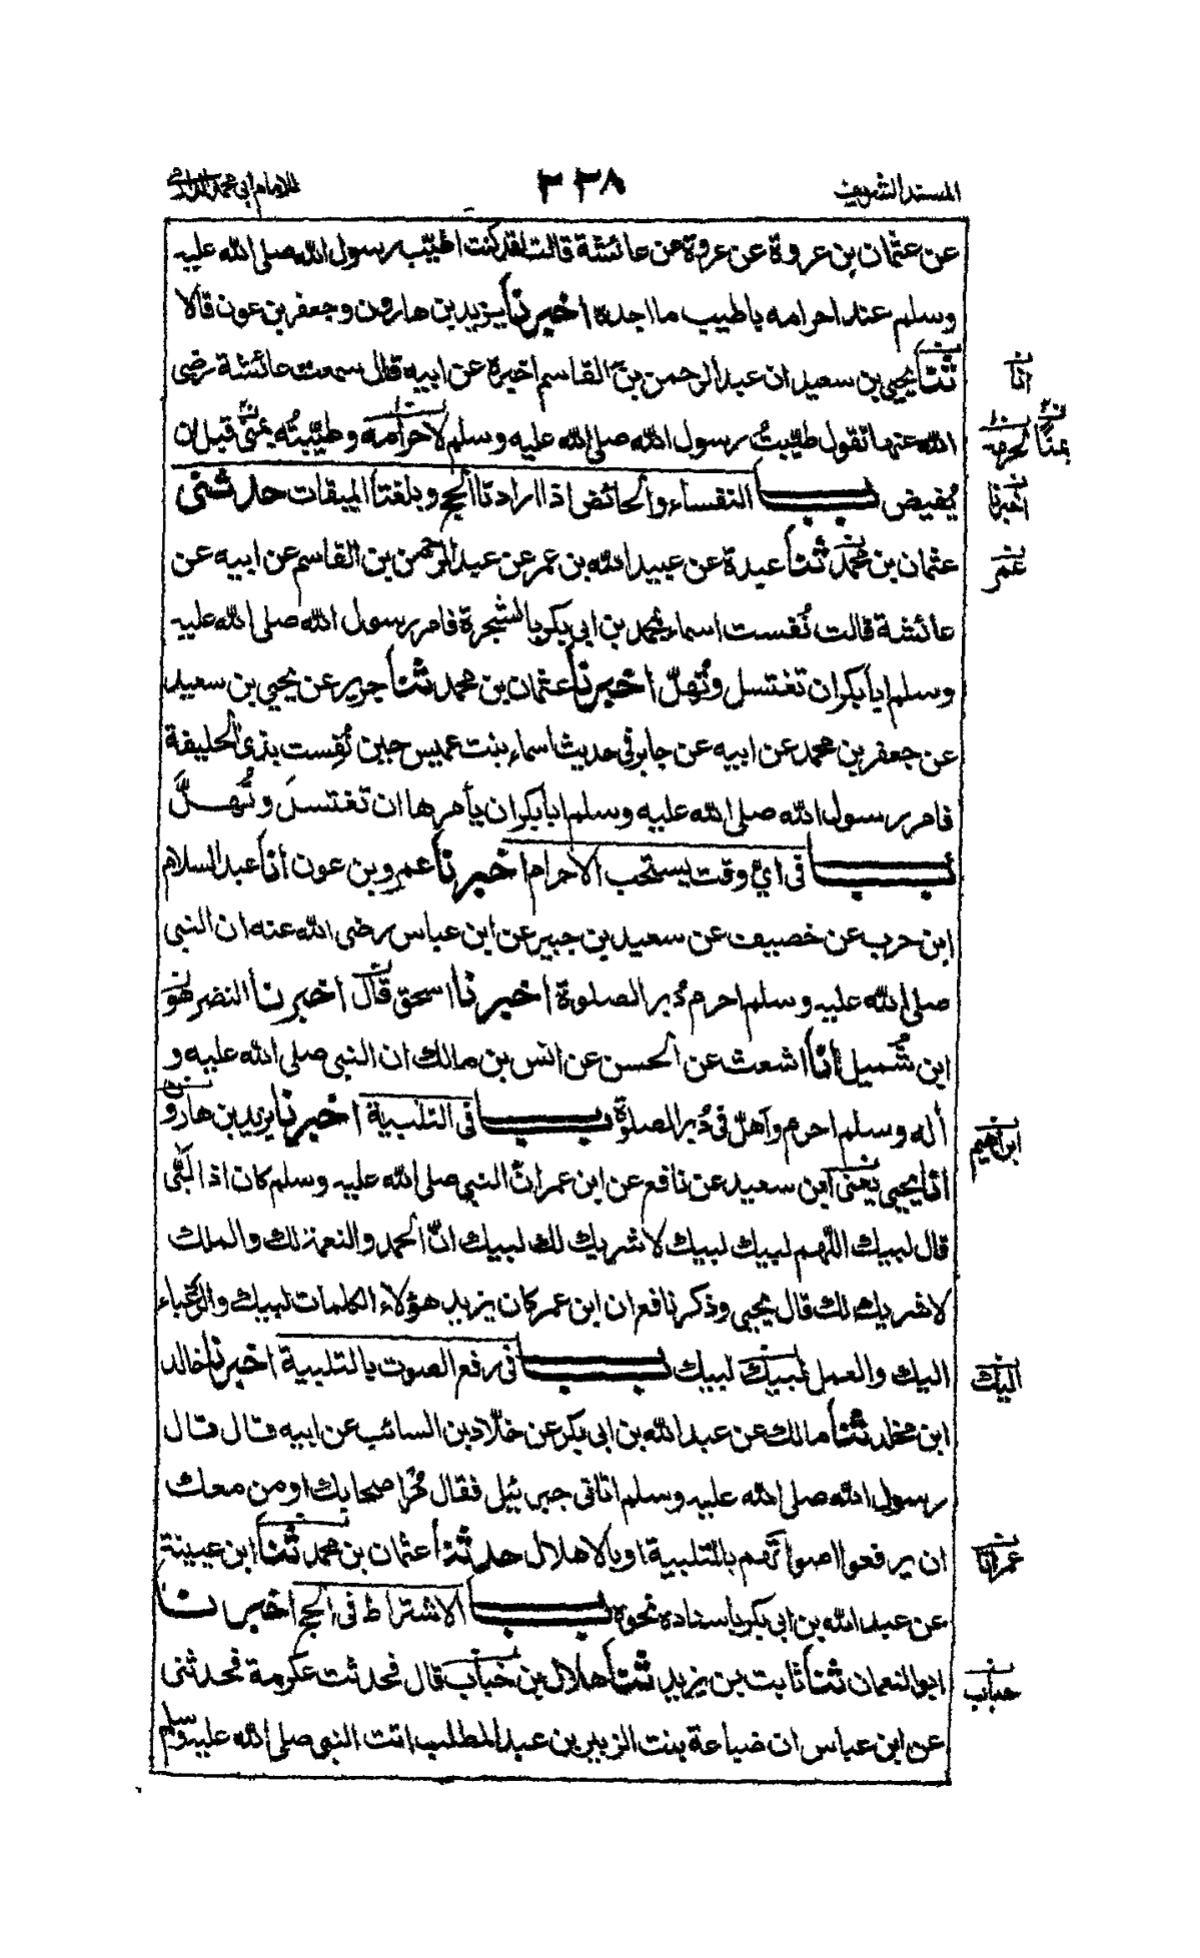 المسند الشريف ٢٣٨ للامام ابي محمد الدارمي
عن عثمان بن عروة عن عروة عن عائشة قالت لقد كنت اطيّب رسول الله صلى الله عليه
وسلم عند احرامه باطيب ما اجده اخبرنا يزيد بن هارون وجعفر بن عون قالا
ثنا يحيى بن سعيد ان عبد الرحمن بن القاسم اخبره عن ابيه قال سمعت عائشة رضى
انا
الله عنها تقول طيّبتُ رسول الله صلى الله عليه وسلم لاحرامه وطيّبتُه بمنى قبل ان
لحرمه بمنًا
يُفيض باب النفساء والحائض اذا ارادتا الحج وبلغتا الميقات حدثنى
اخبرنا
عثمان بن محمد ثنا عبدة عن عبيد الله بن عمر عن عبد الرحمن بن القاسم عن ابيه عن
عمر
عائشة قالت نُفست اسماء بمحمد بن ابى بكر بالشجرة فامر رسول الله صلى الله عليه
وسلم ابا بكر ان تغتسل وتُهلّ اخبرنا عثمان بن محمد ثنا جرير عن يحيى بن سعيد
عن جعفر بن محمد عن ابيه عن جابر فى حديث اسماء بنت عميس حين نُفِست بذى الحليفة
فامر رسول الله صلى الله عليه وسلم ابا بكر ان يأمرها ان تغتسلَ وتُهلَّ
باب فى اىّ وقت يستحب الاحرام اخبرنا عمرو بن عون أنا عبد السلام
ابن حرب عن خصيف عن سعيد بن جبير عن ابن عباس رضى الله عنه ان النبى
صلى الله عليه وسلم احرم دُبر الصلوة اخبرنا اسحق قال اخبرنا النضر هو
ابن شُميل أنا اشعث عن الحسن عن انس بن مالك ان النبى صلى الله عليه و
أله وسلم احرم وأهلّ فى دُبر الصلوة باب فى التلبية اخبرنا يزيد بن هارون
ابراهيم
انا يحيى يعنى ابن سعيد عن نافع عن ابن عمر انّ النبى صلى الله عليه وسلم كان اذا لَبّى
قال لبيك اللّهم لبيك لبيك لا شريك لك لبيك انّ الحمد والنعمة لك والملك
لا شريك لك قال يحيى وذكر نافع ان ابن عمر كان يزيد هؤلاء الكلمات لبيك والرّغباء
اليك والعمل لبيك لبيك باب فى رفع الصوت بالتلبية اخبرنا خالد
اليك
ابن مخلد ثنا مالك عن عبد الله بن ابى بكر عن خلّاد بن السائب عن ابيه قال قال
رسول الله صلى الله عليه وسلم اتانى جبرئيل فقال مُر اصحابك او من معك
ان يرفعوا اصواتهم بالتلبية او بالاهلال حدثنا عثمان بن محمد ثنا ابن عيينة
عمر انا
عن عبد الله بن ابى بكر باسناده نحوه باب الاشتراط فى الحج اخبرنا
ابو النعمان ثنا ثابت بن يزيد ثنا هلال بن خباب قال فحدثت عكرمة فحدثنى
حباب
عن ابن عباس ان ضباعة بنت الزبير بن عبد المطلب اتت النبى صلى الله عليه وسلم